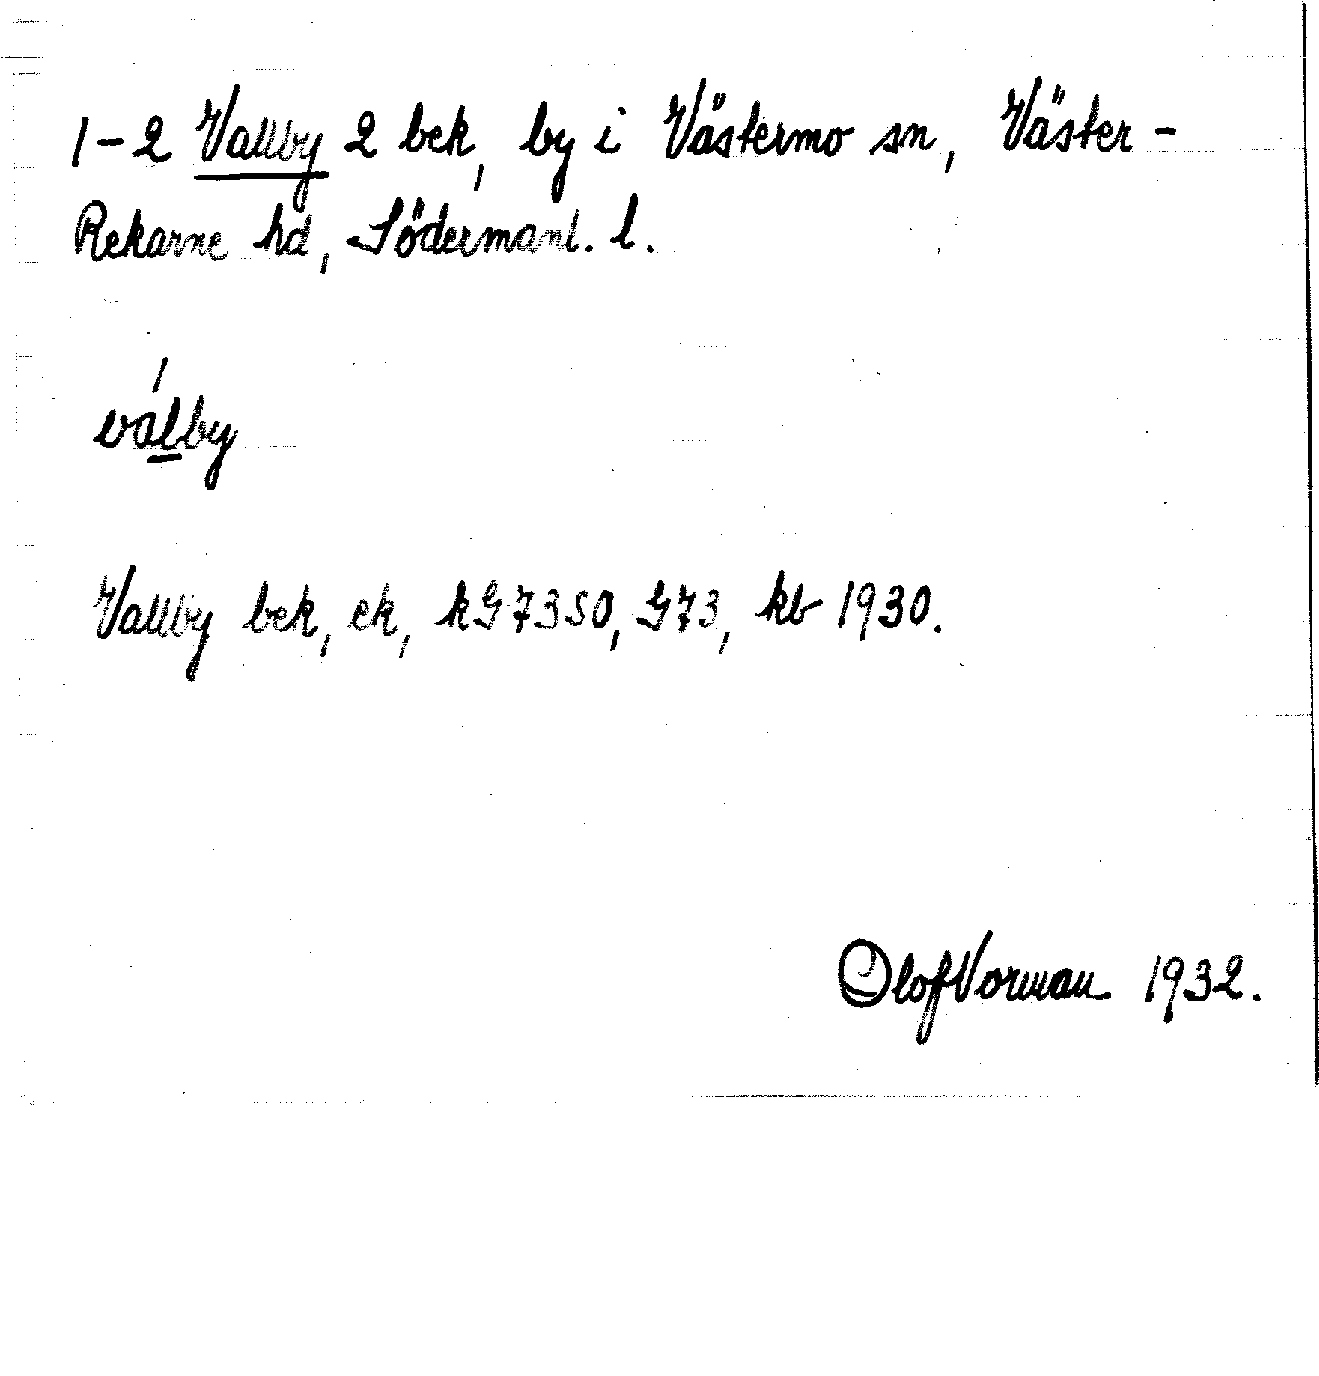 1-2 Vallby 2 bek, by i Västermo sn, Väster-
Rekarne hd, Södermanl. l.
válby
Vallby bek, ek, kG73SO, G73, kb 1930.
Olof Vorman 1932.